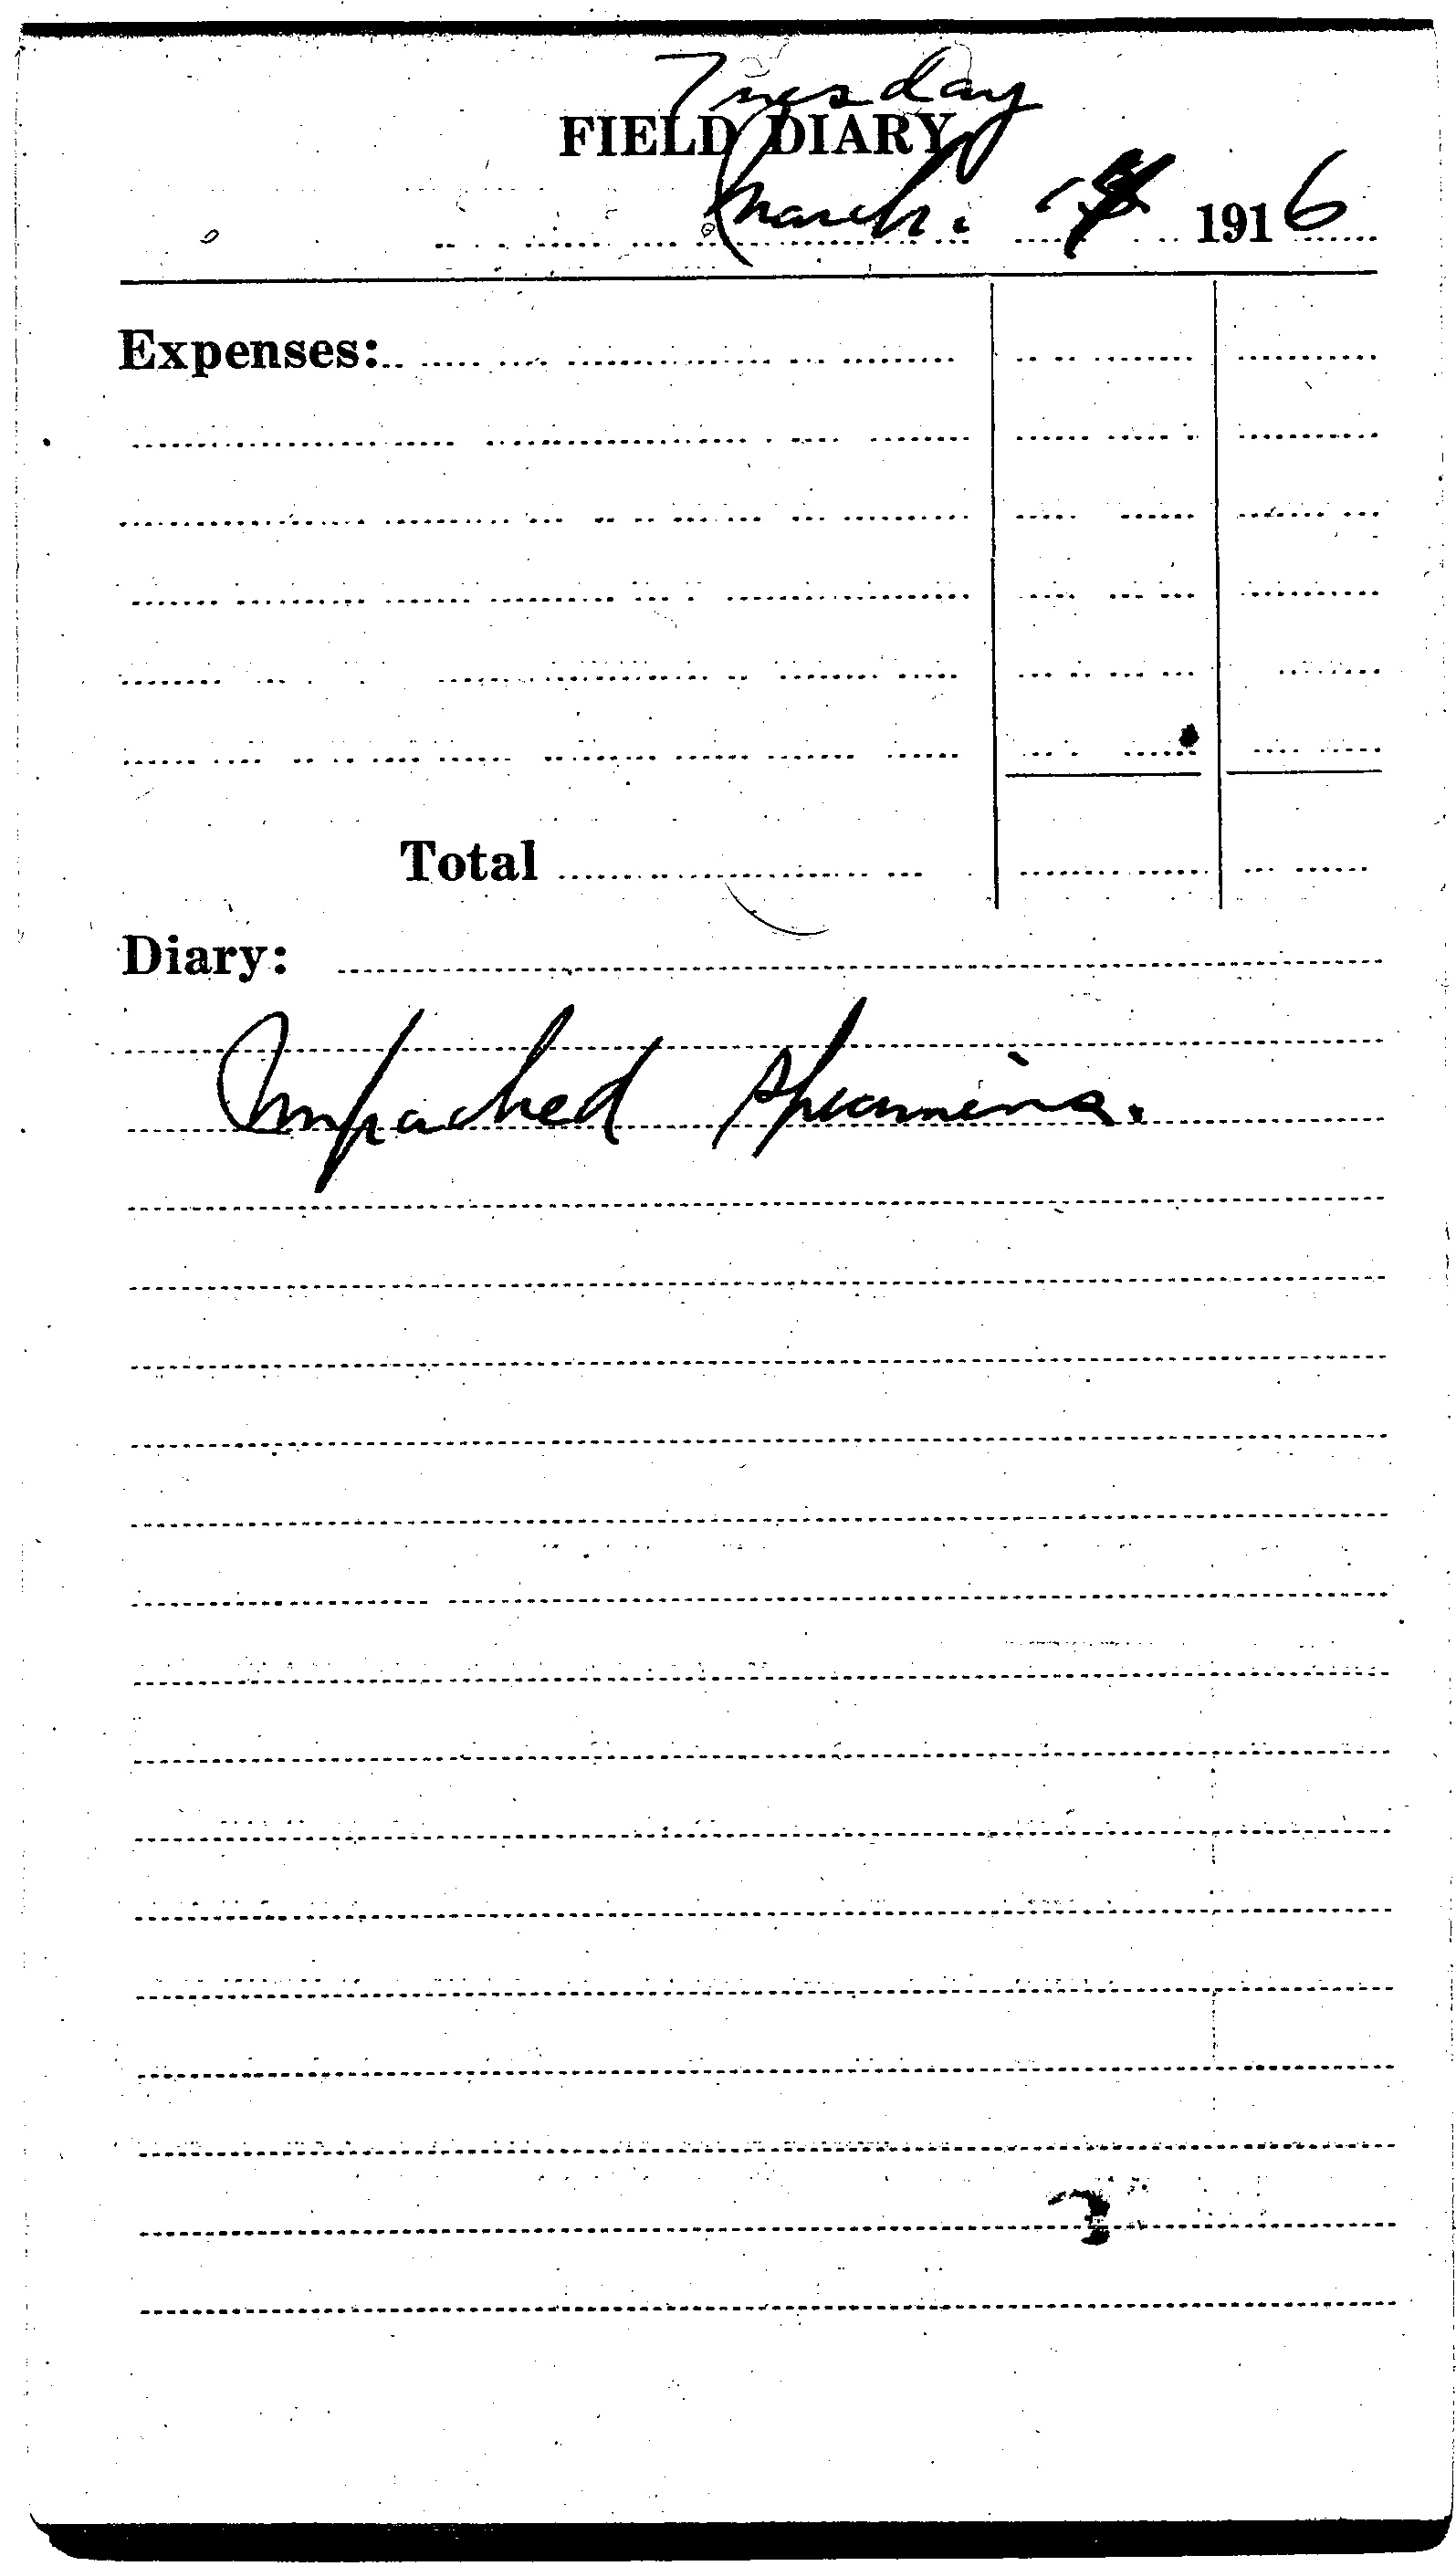 Tuesday
FIELD DIARY
March. 7 1916
Expenses:
Total
Diary:
Unpacked specimens.